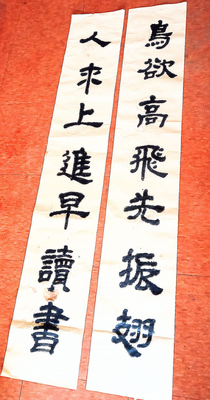 鳥欲高飛先振翅
人求上進早讀書